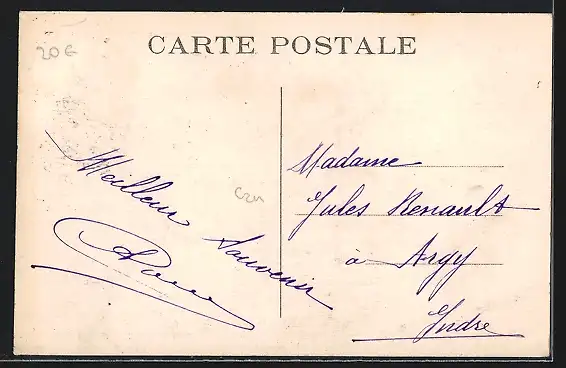 20 €
CARTE POSTALE
Meilleur Souvenir
Madame
Jules Renault
à Argy
Indre